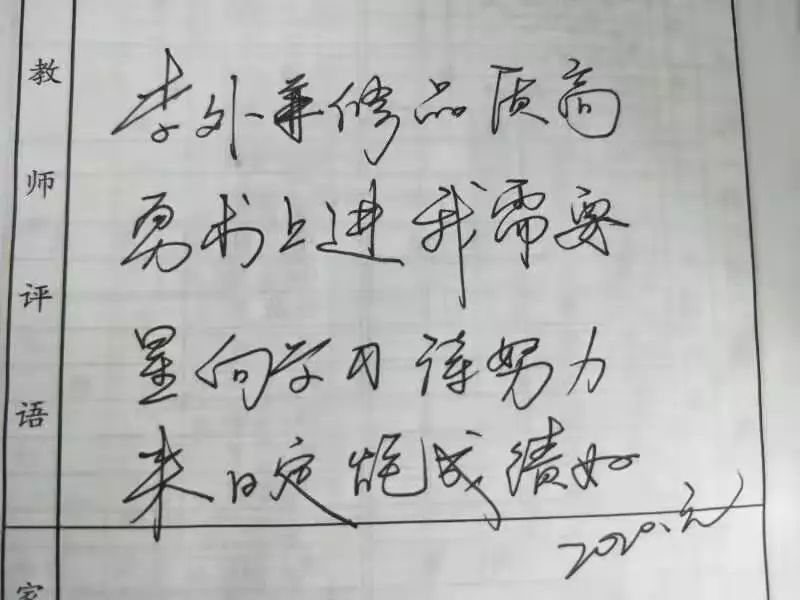 教师评语
外兼修品质高
勇上进我需要
星向学习努力
来日定能成绩好
2020.元
家